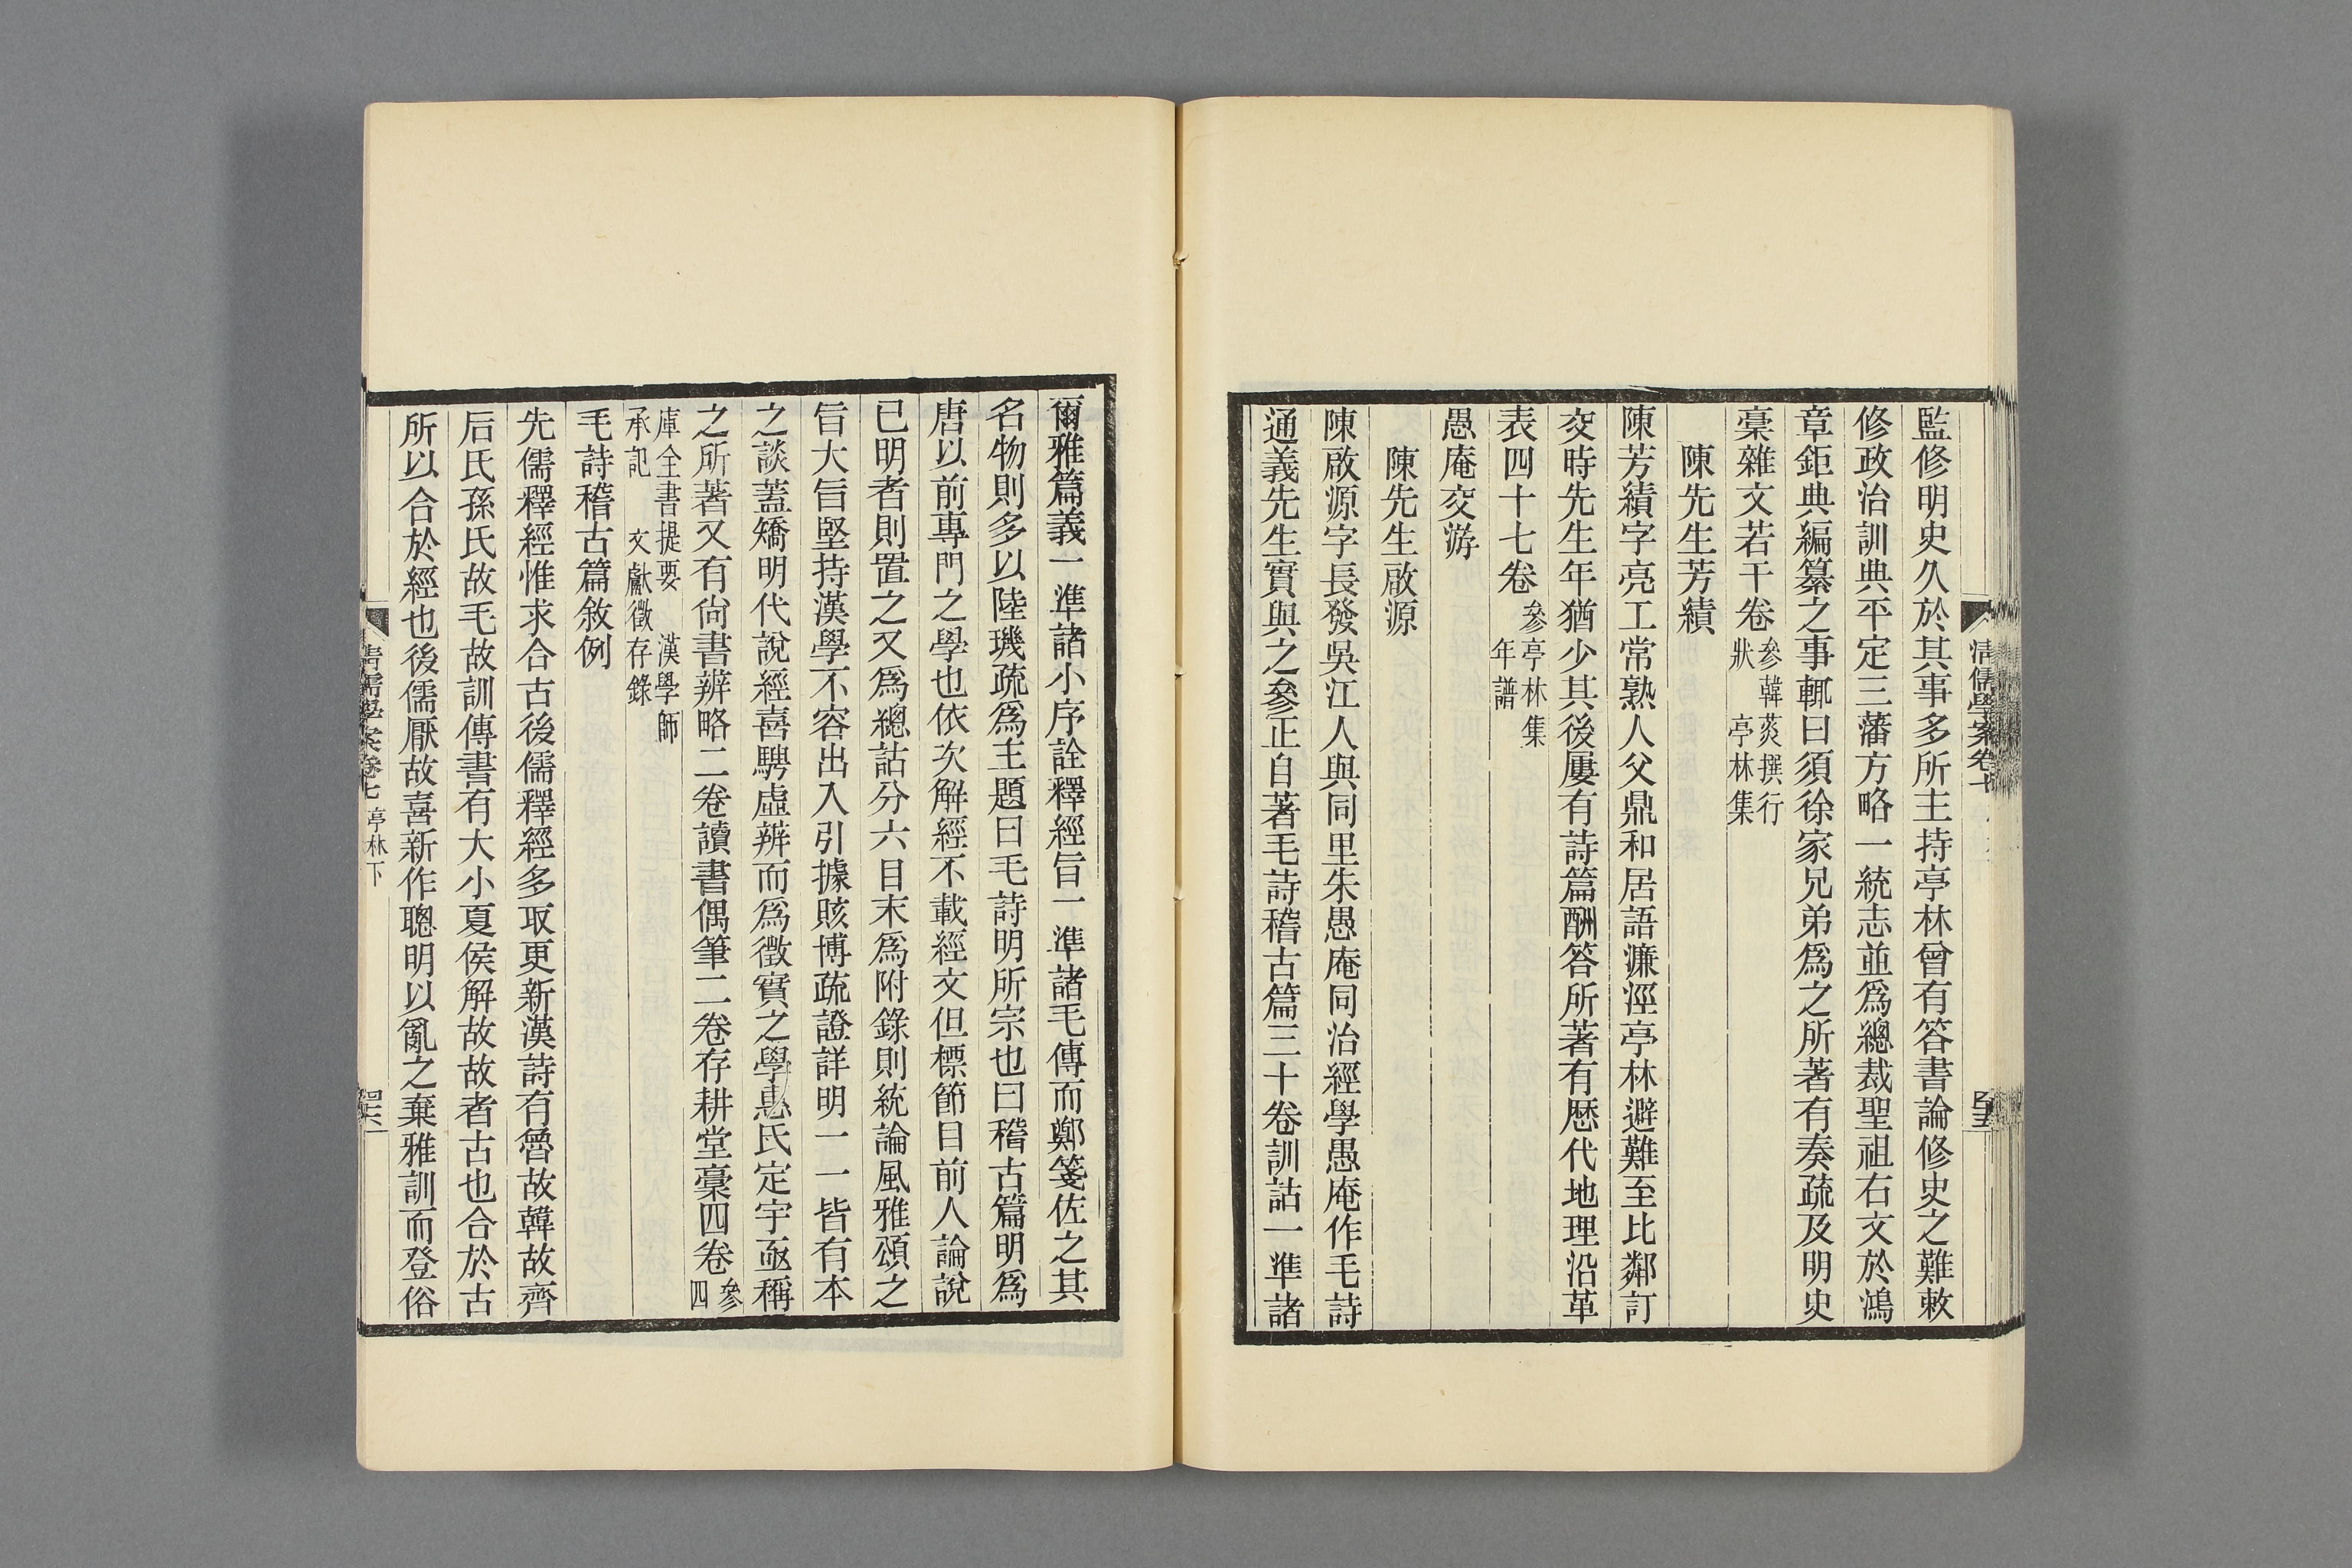 監修明史久於其事多所主持亭林曾有答書論修史之難敕
修政治訓典平定三藩方略一統志並爲總裁聖祖右文於鴻
章鉅典編纂之事輒曰須徐家兄弟爲之所著有奏疏及明史
稾雜文若干卷參韓菼撰行狀 亭林集
陳先生芳績
陳芳績字亮工常熟人父鼎和居語濂涇亭林避難至比鄰訂
交時先生年猶少其後屢有詩篇酬答所著有歷代地理沿革
表四十七卷參亭林集年譜
愚庵交游
陳先生啟源
陳啟源字長發吳江人與同里朱愚庵同治經學愚庵作毛詩
通義先生實與之參正自著毛詩稽古篇三十卷訓詁一準諸
爾雅篇義一準諸小序詮釋經旨一準諸毛傳而鄭箋佐之其
名物則多以陸璣疏爲主題曰毛詩明所宗也曰稽古篇明爲
唐以前專門之學也依次解經不載經文但標節目前人論說
已明者則置之又爲總詁分六目末爲附錄則統論風雅頌之
旨大旨堅持漢學不容出入引據賅博疏證詳明一一皆有本
之談蓋矯明代說經喜騁虛辨而爲徵實之學惠氏定宇亟稱
之所著又有尙書辨略二卷讀書偶筆二卷存耕堂稾四卷參四
庫全書提要 漢學師承記 文獻徵存錄
毛詩稽古篇敘例
先儒釋經惟求合古後儒釋經多取更新漢詩有魯故韓故齊
后氏孫氏故毛故訓傳書有大小夏侯解故故者古也合於古
所以合於經也後儒厭故喜新作聰明以亂之棄雅訓而登俗
清儒學案卷七 亭林下